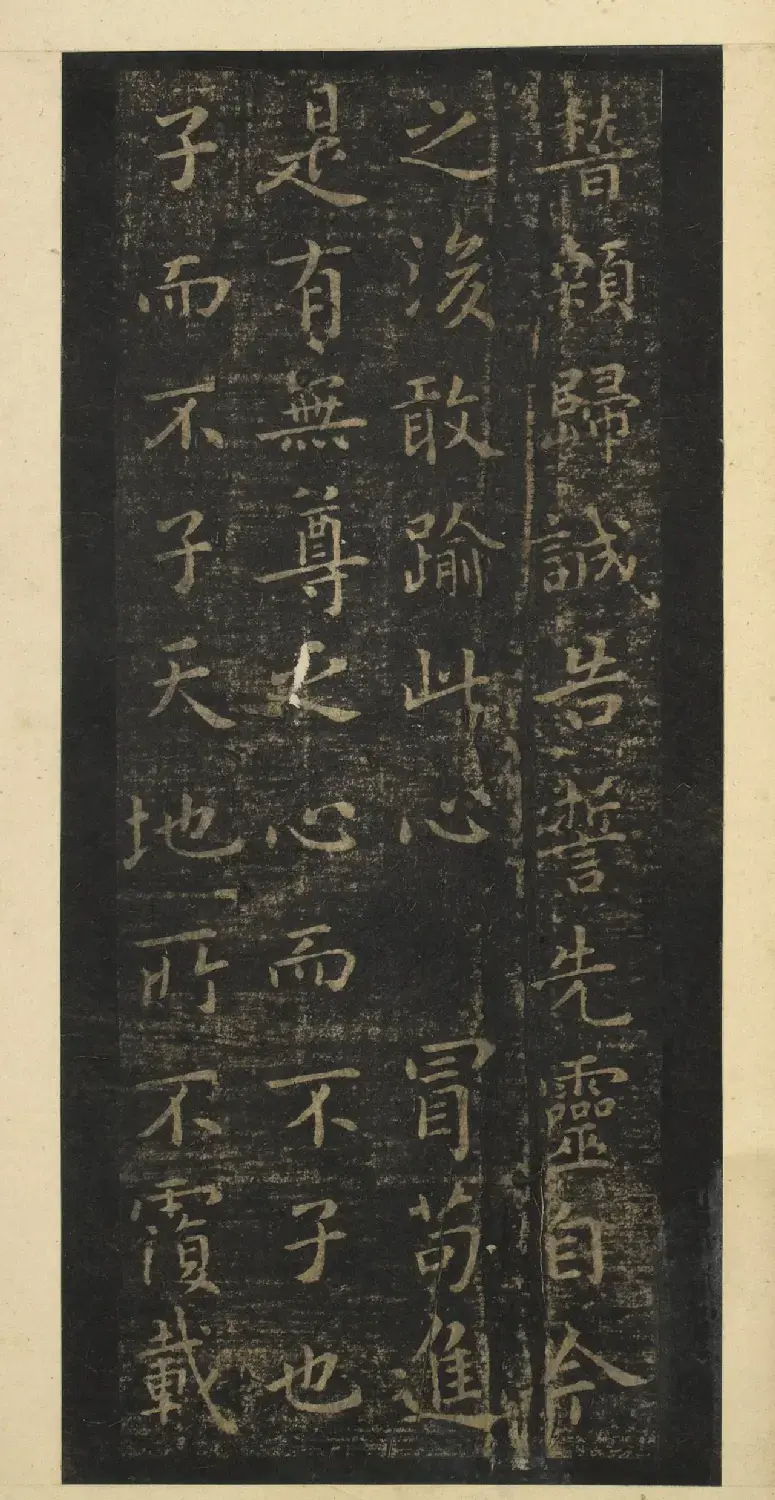 稽顙歸誠告誓先靈自今
之後敢踰此心冒苟進
是有無尊之心而不子也
子而不子天地所不覆載